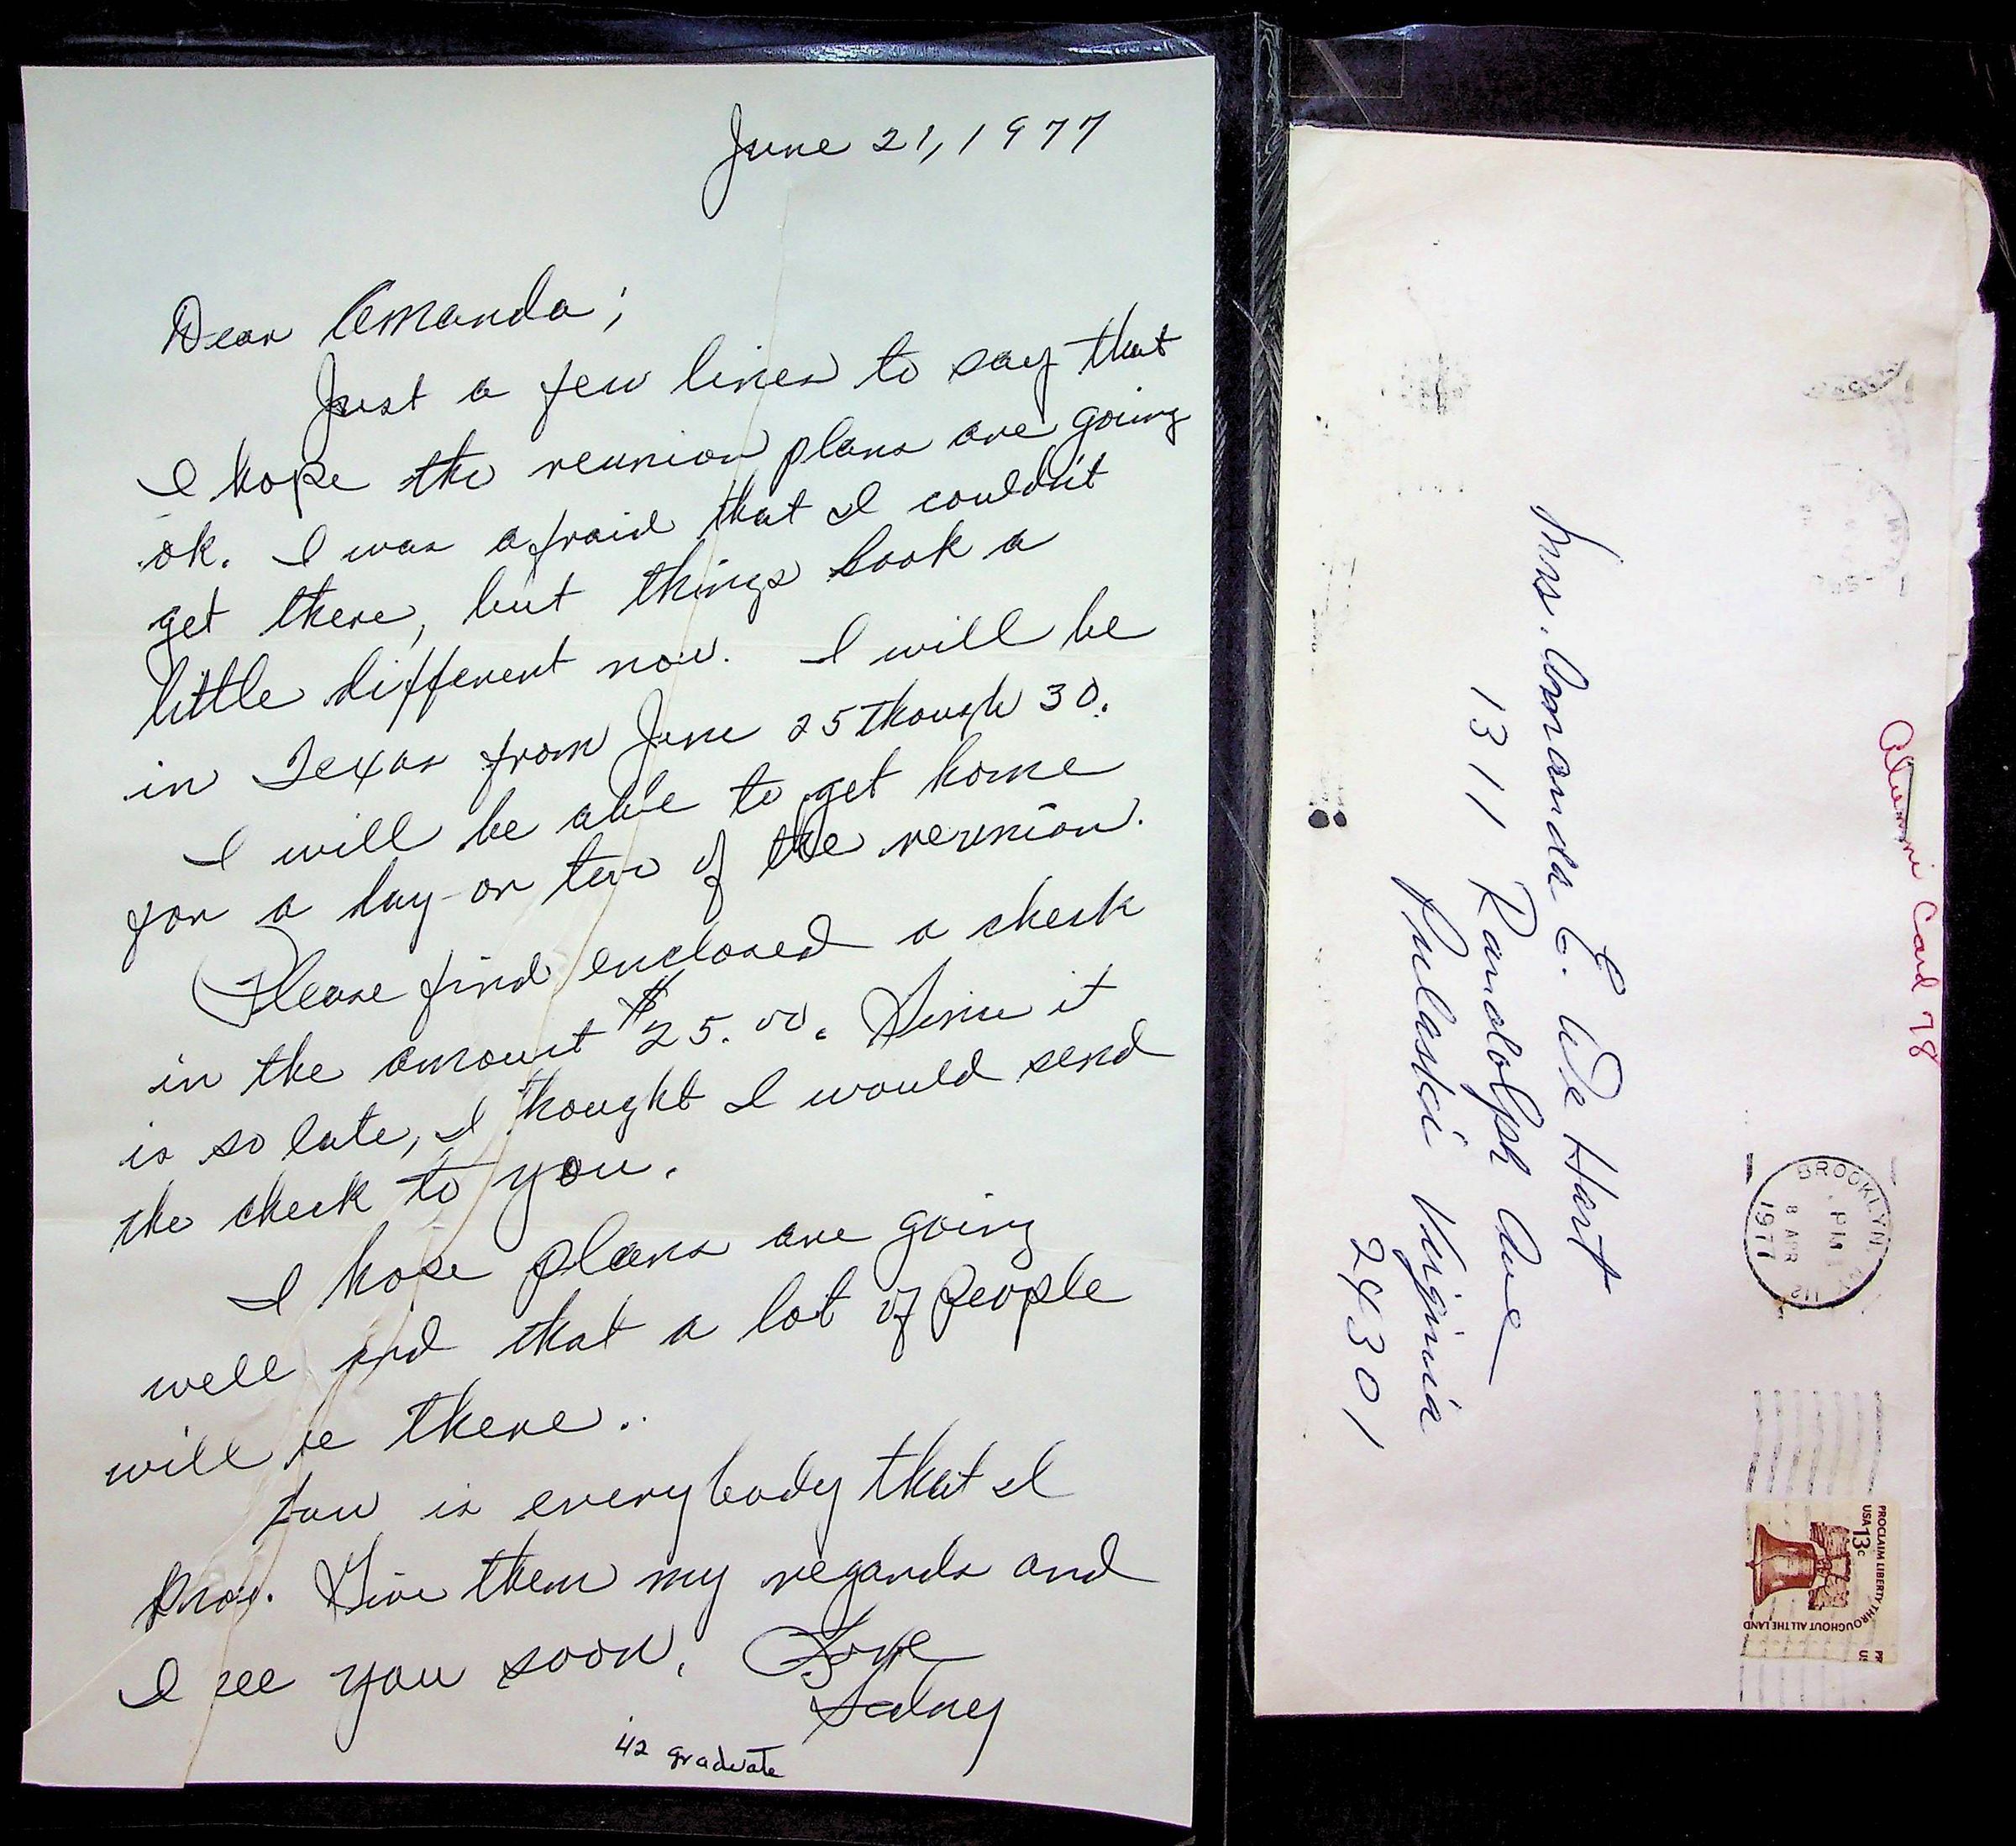 June 21, 1977
Dear Amanda;
Just a few lines to say that
I hope the reunion plans are going
ok. I was afraid that I couldn't
get there, but things look a
little different now. I will be
in Texas from June 25 though 30.
I will be able to get home
for a day or two of the reunion.
Please find enclosed a check
in the amount $25.00. Since it
is so late, I thought I would send
the check to you.
I hope plans are going
well and that a lot of people
will be there.
How is everybody that I
know. Give them my regards and
I see you soon. Love
Sidney
'42 graduate
Alumni Card 78
BROOKLYN, NY
PM
8 APR
1977
112
PROCLAIM LIBERTY THROUGHOUT ALL THE LAND
USA 13c
Mrs. Amanda E. De Hart
1311 Randolph Ave
Pulaski Virginia
24301